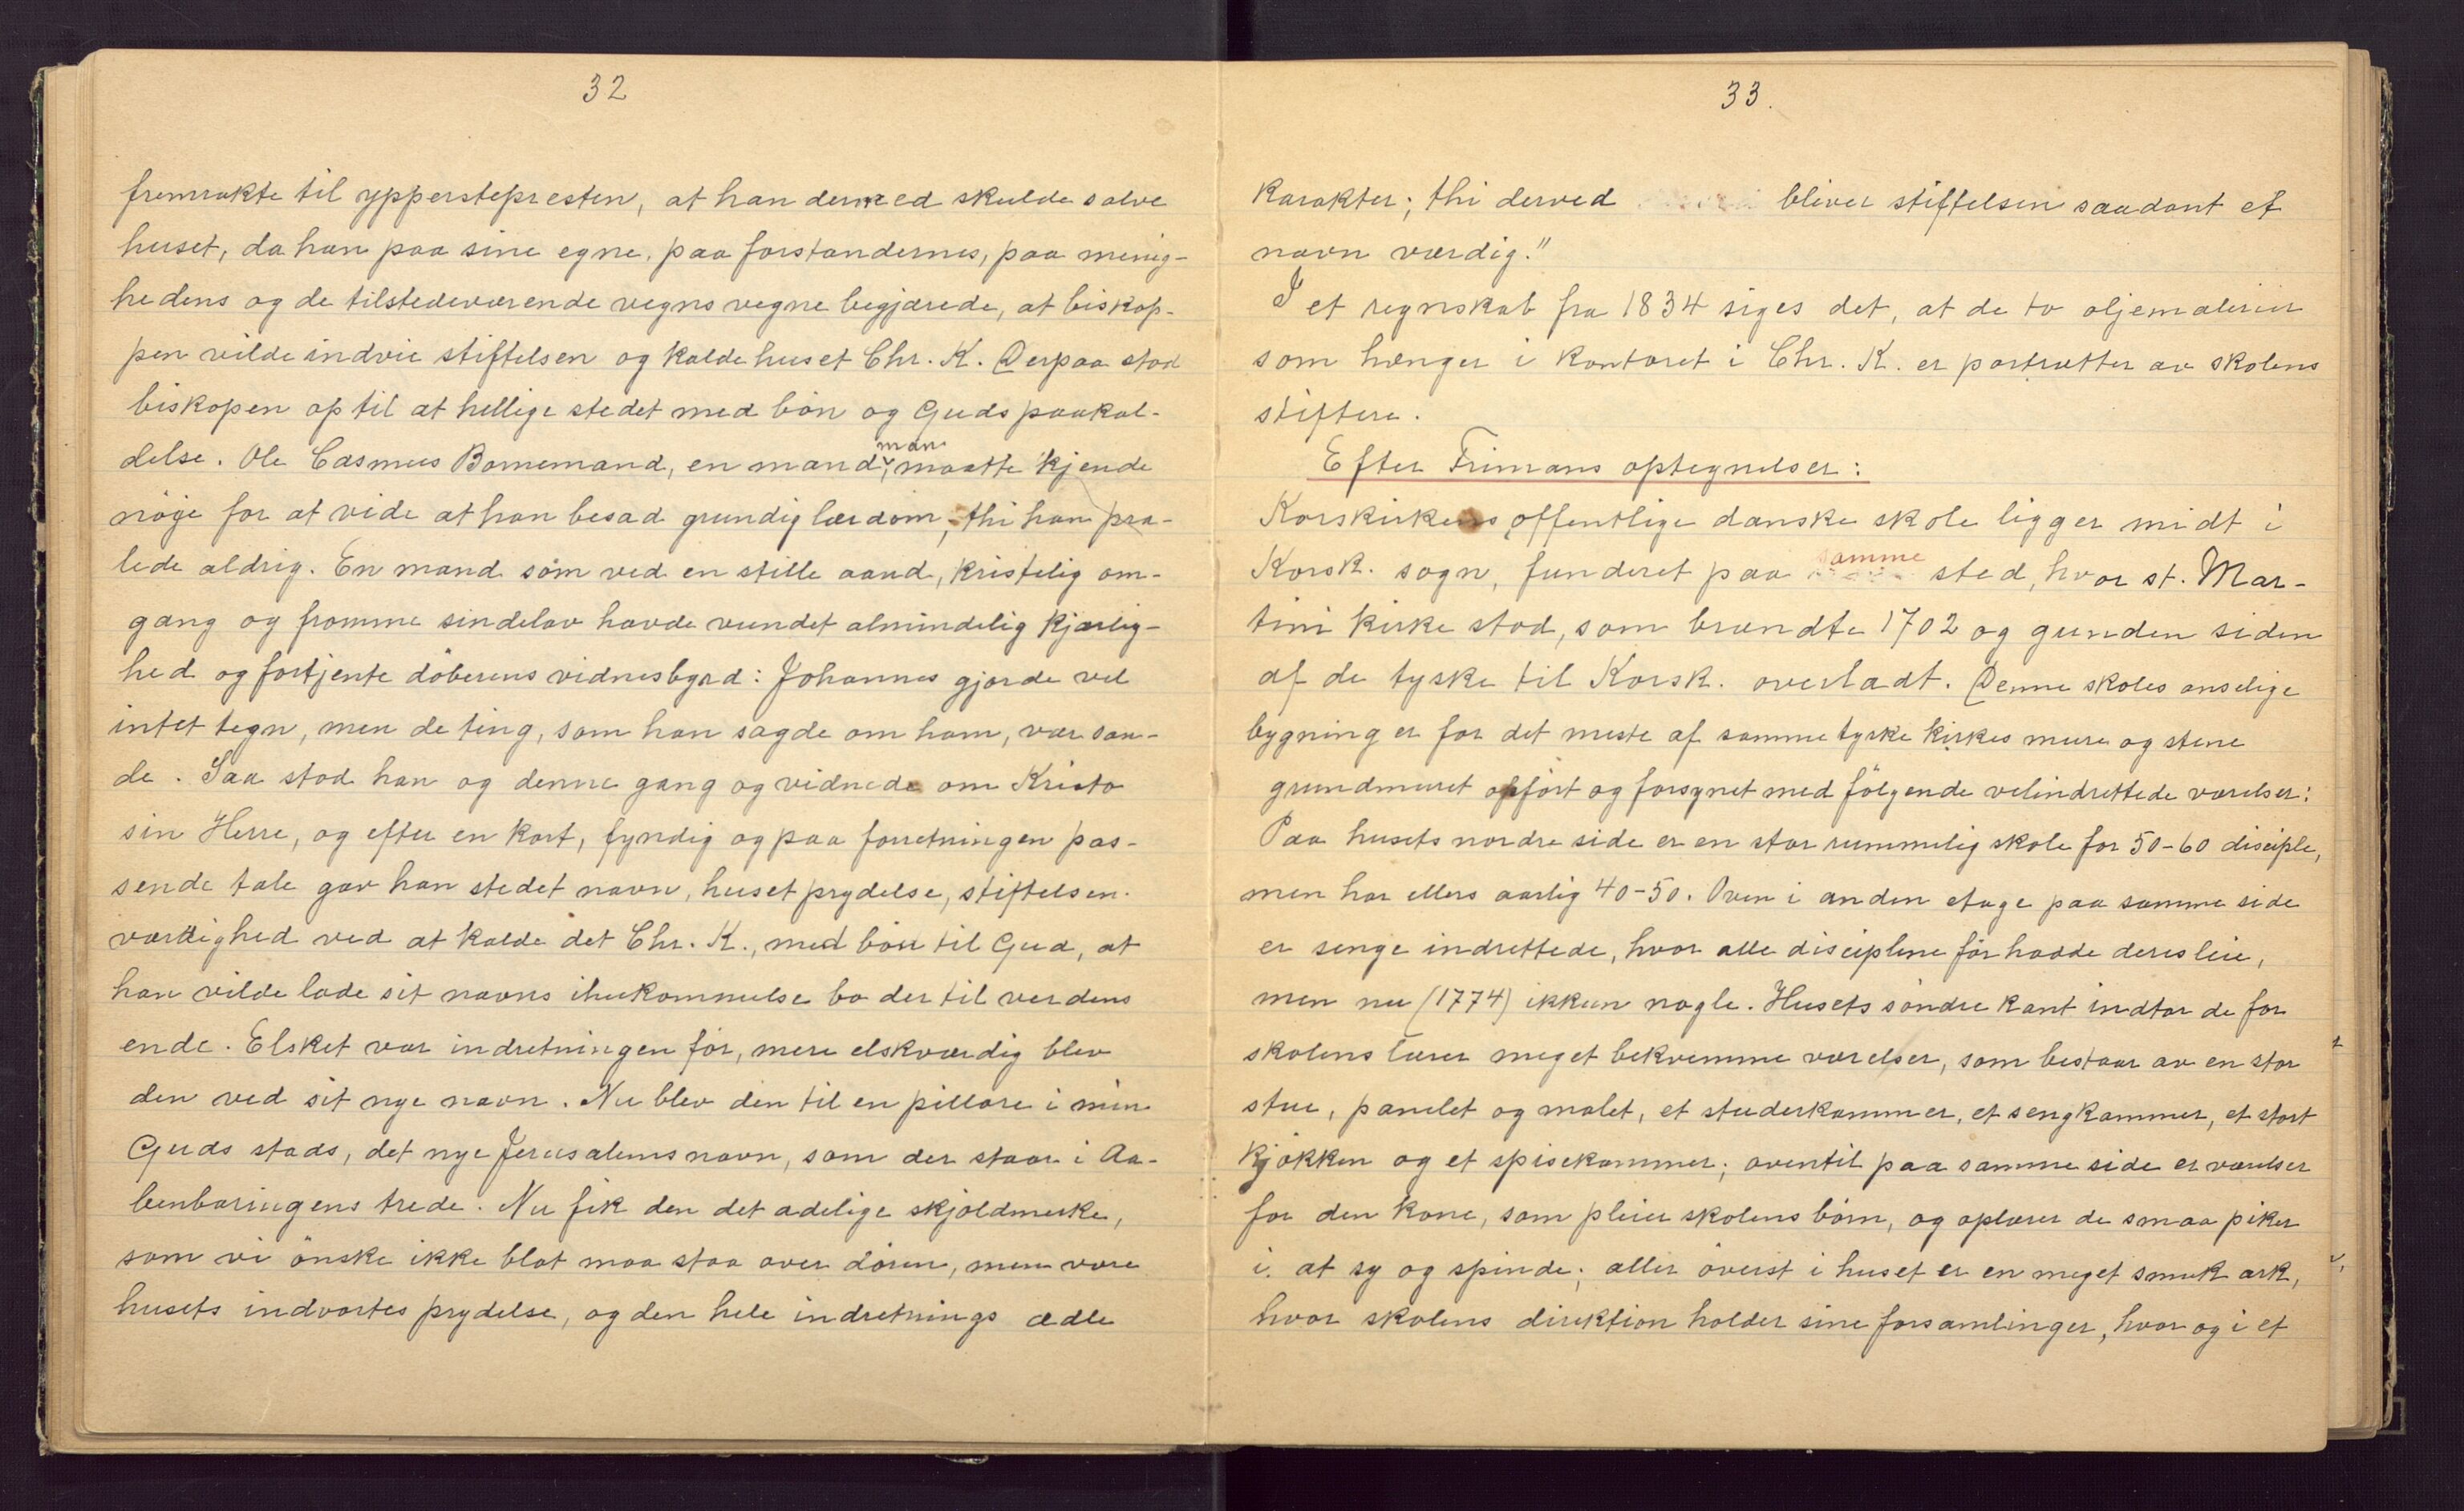 32
fremrakte til yppersteprresten, at han dermed skulde salve
huset, da han paa sine egne, paa forstandernes, paa menig-
hedens og de tilstedeværende vegns vegne begjærede, at biskop-
pen vilde indvie stiftelsen og kalde huset Chr. K. Derpaa stod
biskopen op til at hellige stedet med bön og Guds paakal-
delse. Ole Casmus Bornemand, en mand, man maatte kjende
nöge for at vide at han besad grundig lærdom, thi han pra-
lede aldrig. En mand som ved en stille aand, kristelig om-
gang og fromme sindelav havde vundet almindelig kjærlig-
hed og fortjente döberens vidnesbyrd: Johannes gjorde vel
intet tegn, men de ting, som han sagde om ham, var san-
de. Saa stod han og denne gang og vidnede om Kristo
sin Herre, og efter en kort, fyndig og paa forretningen pas-
sende tale gav han stedet navn, huset prydelse, stiftelsen
værdighed ved at kalde det Chr. K., med bön til Gud, at
han vilde lade sit navns ihukommelse bo der til verdens
ende. Elsket var indretningen för, mere elskværdig blev
den ved sit nye navn. Nu blev den til en pillare i min
Guds stads, det nye Jerusalems navn, som der staar i Aa-
benbaringens trede. Nu fik den det adelige skjoldmerke,
som vi önske ikke blot maa staa over dören, men være
husets indvortes prydelse, og den hele indretnings ædle
33.
karakter; thi derved bliver stiftelsen saadant et
navn værdig."
I et regnskab fra 1834 siges det, at de to oljemalerier
som hænger i kontoret i Chr. K. er portrætter av skolens
stiftere.
Efter Frimans optegnelser:
Korskirkens offentlige danske skole ligger midt i
Korsk. sogn, funderet paa samme sted, hvor st. Mar-
tini kirke stod, som brændte 1702 og gunden siden
af de tyske til Korsk. overladt. Denne skoles anselige
bygning er for det meste af samme tyske kirkes mure og stene
grundmuret opfört og forsynet med fölgende velindrettede værelser:
Paa husets nordre side er en stor rummelig skole for 50-60 disciple,
men har ellers aarlig 40-50. Oven i anden etage paa samme side
er senge indrettede, hvor alle disciplene för hadde deres leie,
men nu (1774) ikkun nogle. Husets söndre kant indtar de for
skolens lærer meget bekvemme værelser, som bestaar av en stor
stue, panelet og malet, et studerkammer, et sengkammer, et stort
kjökken og et spisekammer; oventil paa samme side er værelser
for den kone, som pleier skolens börn, og oplærer de smaa piker
i at sy og spinde; aller överst i huset er en meget smuk ark,
hvor skolens direktion holder sine forsamlinger, hvor og i et